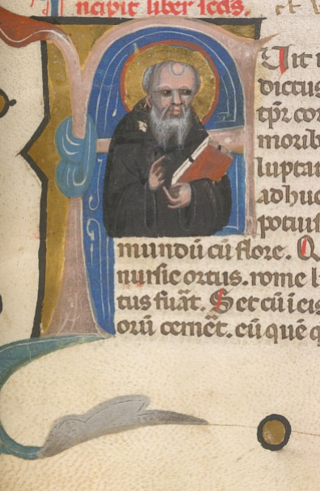 ncipit liber scds.
Uit
dictus
tpr cor
morib
lupta
adhuc
potuis
mundū cū flore. Q
nursie ortus. rome l
tus fuāt. Set cū i eis
orū cernēt. eū quē q